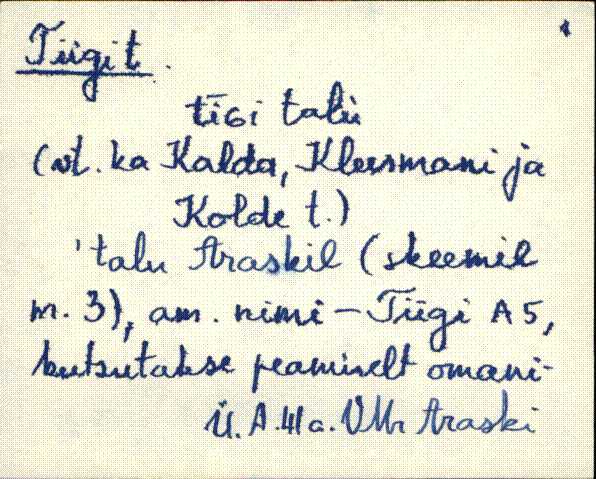 Tiigi t.
tīGi talu
(vt. ka Kalda, Kleesmani ja
Kolde t.)
'talu Araskil (skeemil
nr. 3), am. nimi – Tiigi A 5,
kutsutakse peamiselt omani-
Ü. A. 41 a. VMr Araski